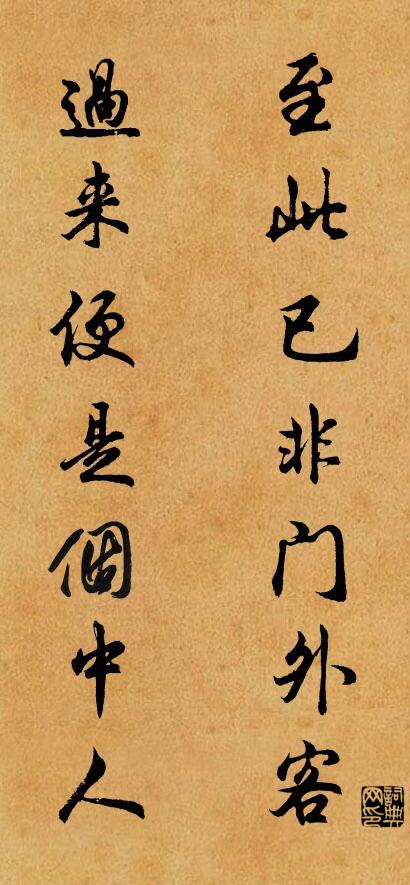 至此已非门外客
過来便是個中人
詞典网印